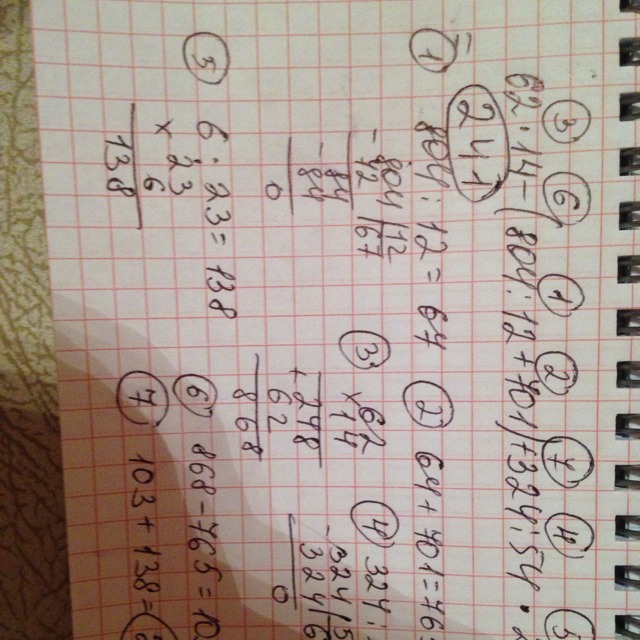 ③ ⑥ ① ② ⑦ ④
62·14-(804:12+701)+324:54·
241
① 804:12=67
804|12
-72 67
84
-84
0
② 64+701=76
③ 62
×14
248
+62
868
④ 324:
324|5
-324 6
0
⑤ 6·23=138
23
×6
138
⑥ 868-765=10
⑦ 103+138=